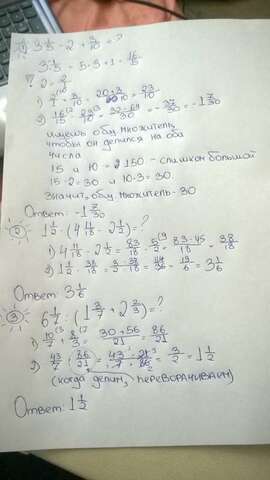 ① 3 1/5 - 2 + 3/10 = ?
3 1/5 = 5·3+1 = 16/5
2 = 2/1
1) 2/1 + 3/10 = 20+3/10 = 23/10
2) 16/15 - 23/10 = 32-69/30 = - 37/30 = -1 7/30
ищешь общ. множитель,
чтобы он делился на оба
числа
15 и 10 = 150 - слишком большой
15·2=30 и 10·3=30.
Значит, общ. множитель - 30
Ответ: -1 7/30
② 1 1/2 · (4 11/18 - 2 1/2) = ?
1) 4 11/18 - 2 1/2 = 83/18 - 5/2 = 83-45/18 = 38/18
2) 1 1/2 · 38/18 = 3·38/2·18 = 19/6 = 3 1/6
Ответ: 3 1/6
③ : (1 3/7 + 2 2/3) = ?
1) 10/7 + 8/3 = 30+56/21 = 86/21
2) 43/7 : 86/21 = 43·21/7·86 = 3/2 = 1 1/2
(когда делим, переворачиваем)
Ответ: 1 1/2